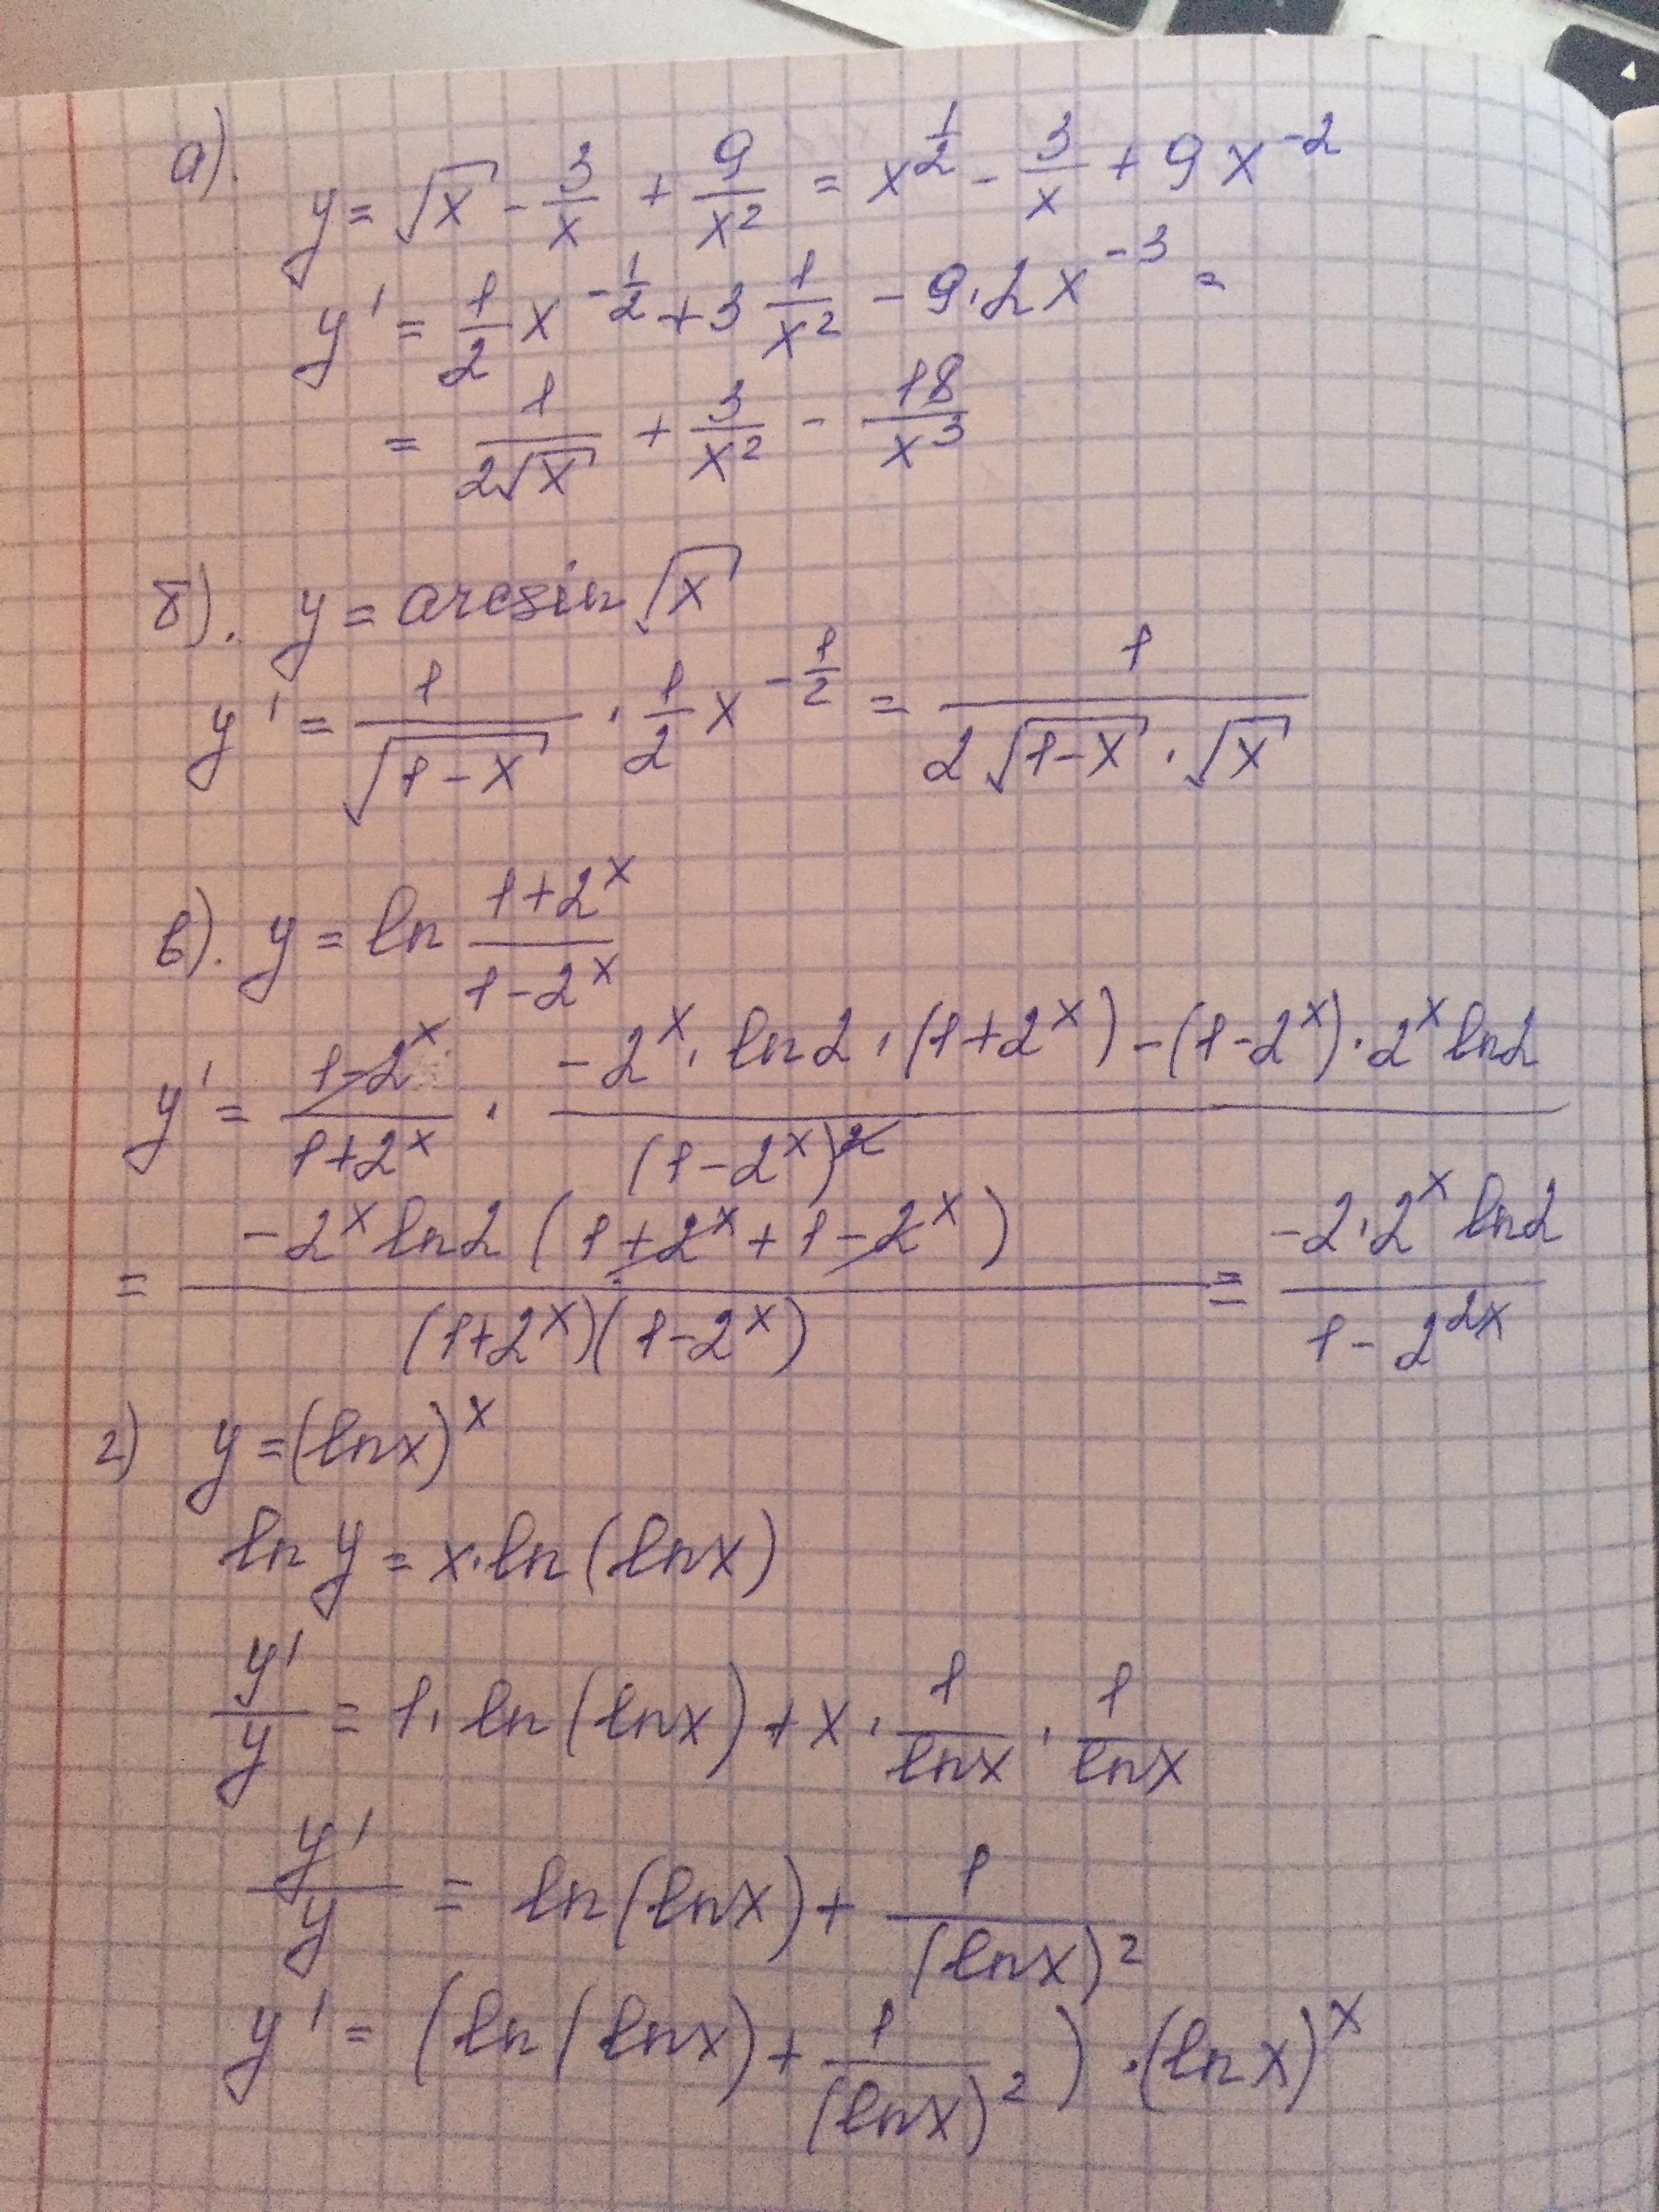 а). y = √x - 3/x + 9/x² = x^(1/2) - 3/x + 9x^(-2)
y' = 1/2 x^(-1/2) + 3 1/x² - 9·2x^(-3) =
= 1/(2√x) + 3/x² - 18/x³
б). y = arcsin √x
y' = 1/√(1-x) · 1/2 x^(-1/2) = 1/(2√(1-x) · √x)
в). y = ln (1+2^x)/(1-2^x)
y' = (1-2^x)/(1+2^x) · (-2^x · ln2 · (1+2^x) - (1-2^x) · 2^x ln2)/(1-2^x)²
= (-2^x ln2 (1+2^x+1-2^x))/((1+2^x)(1-2^x)) = (-2·2^x ln2)/(1-2^(2x))
г) y = (lnx)^x
ln y = x·ln(lnx)
y'/y = 1·ln(lnx) + x · 1/lnx · 1/lnx
y'/y = ln(lnx) + 1/(lnx)²
y' = (ln(lnx) + 1/(lnx)²) · (lnx)^x